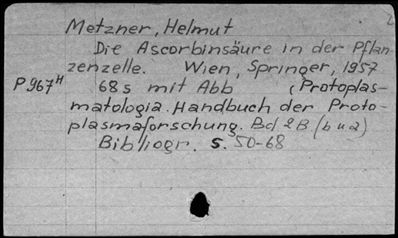 Metzner, Helmut
Die Ascorbinsäure in der Pflan-
zenzelle. Wien, Springer, 1957
P 967H 68s mit Abb (Protoplas-
matologia. Handbuch der Proto-
plasmaforschung. Bd 2B (b u a)
Bibliogr. S. 50-68